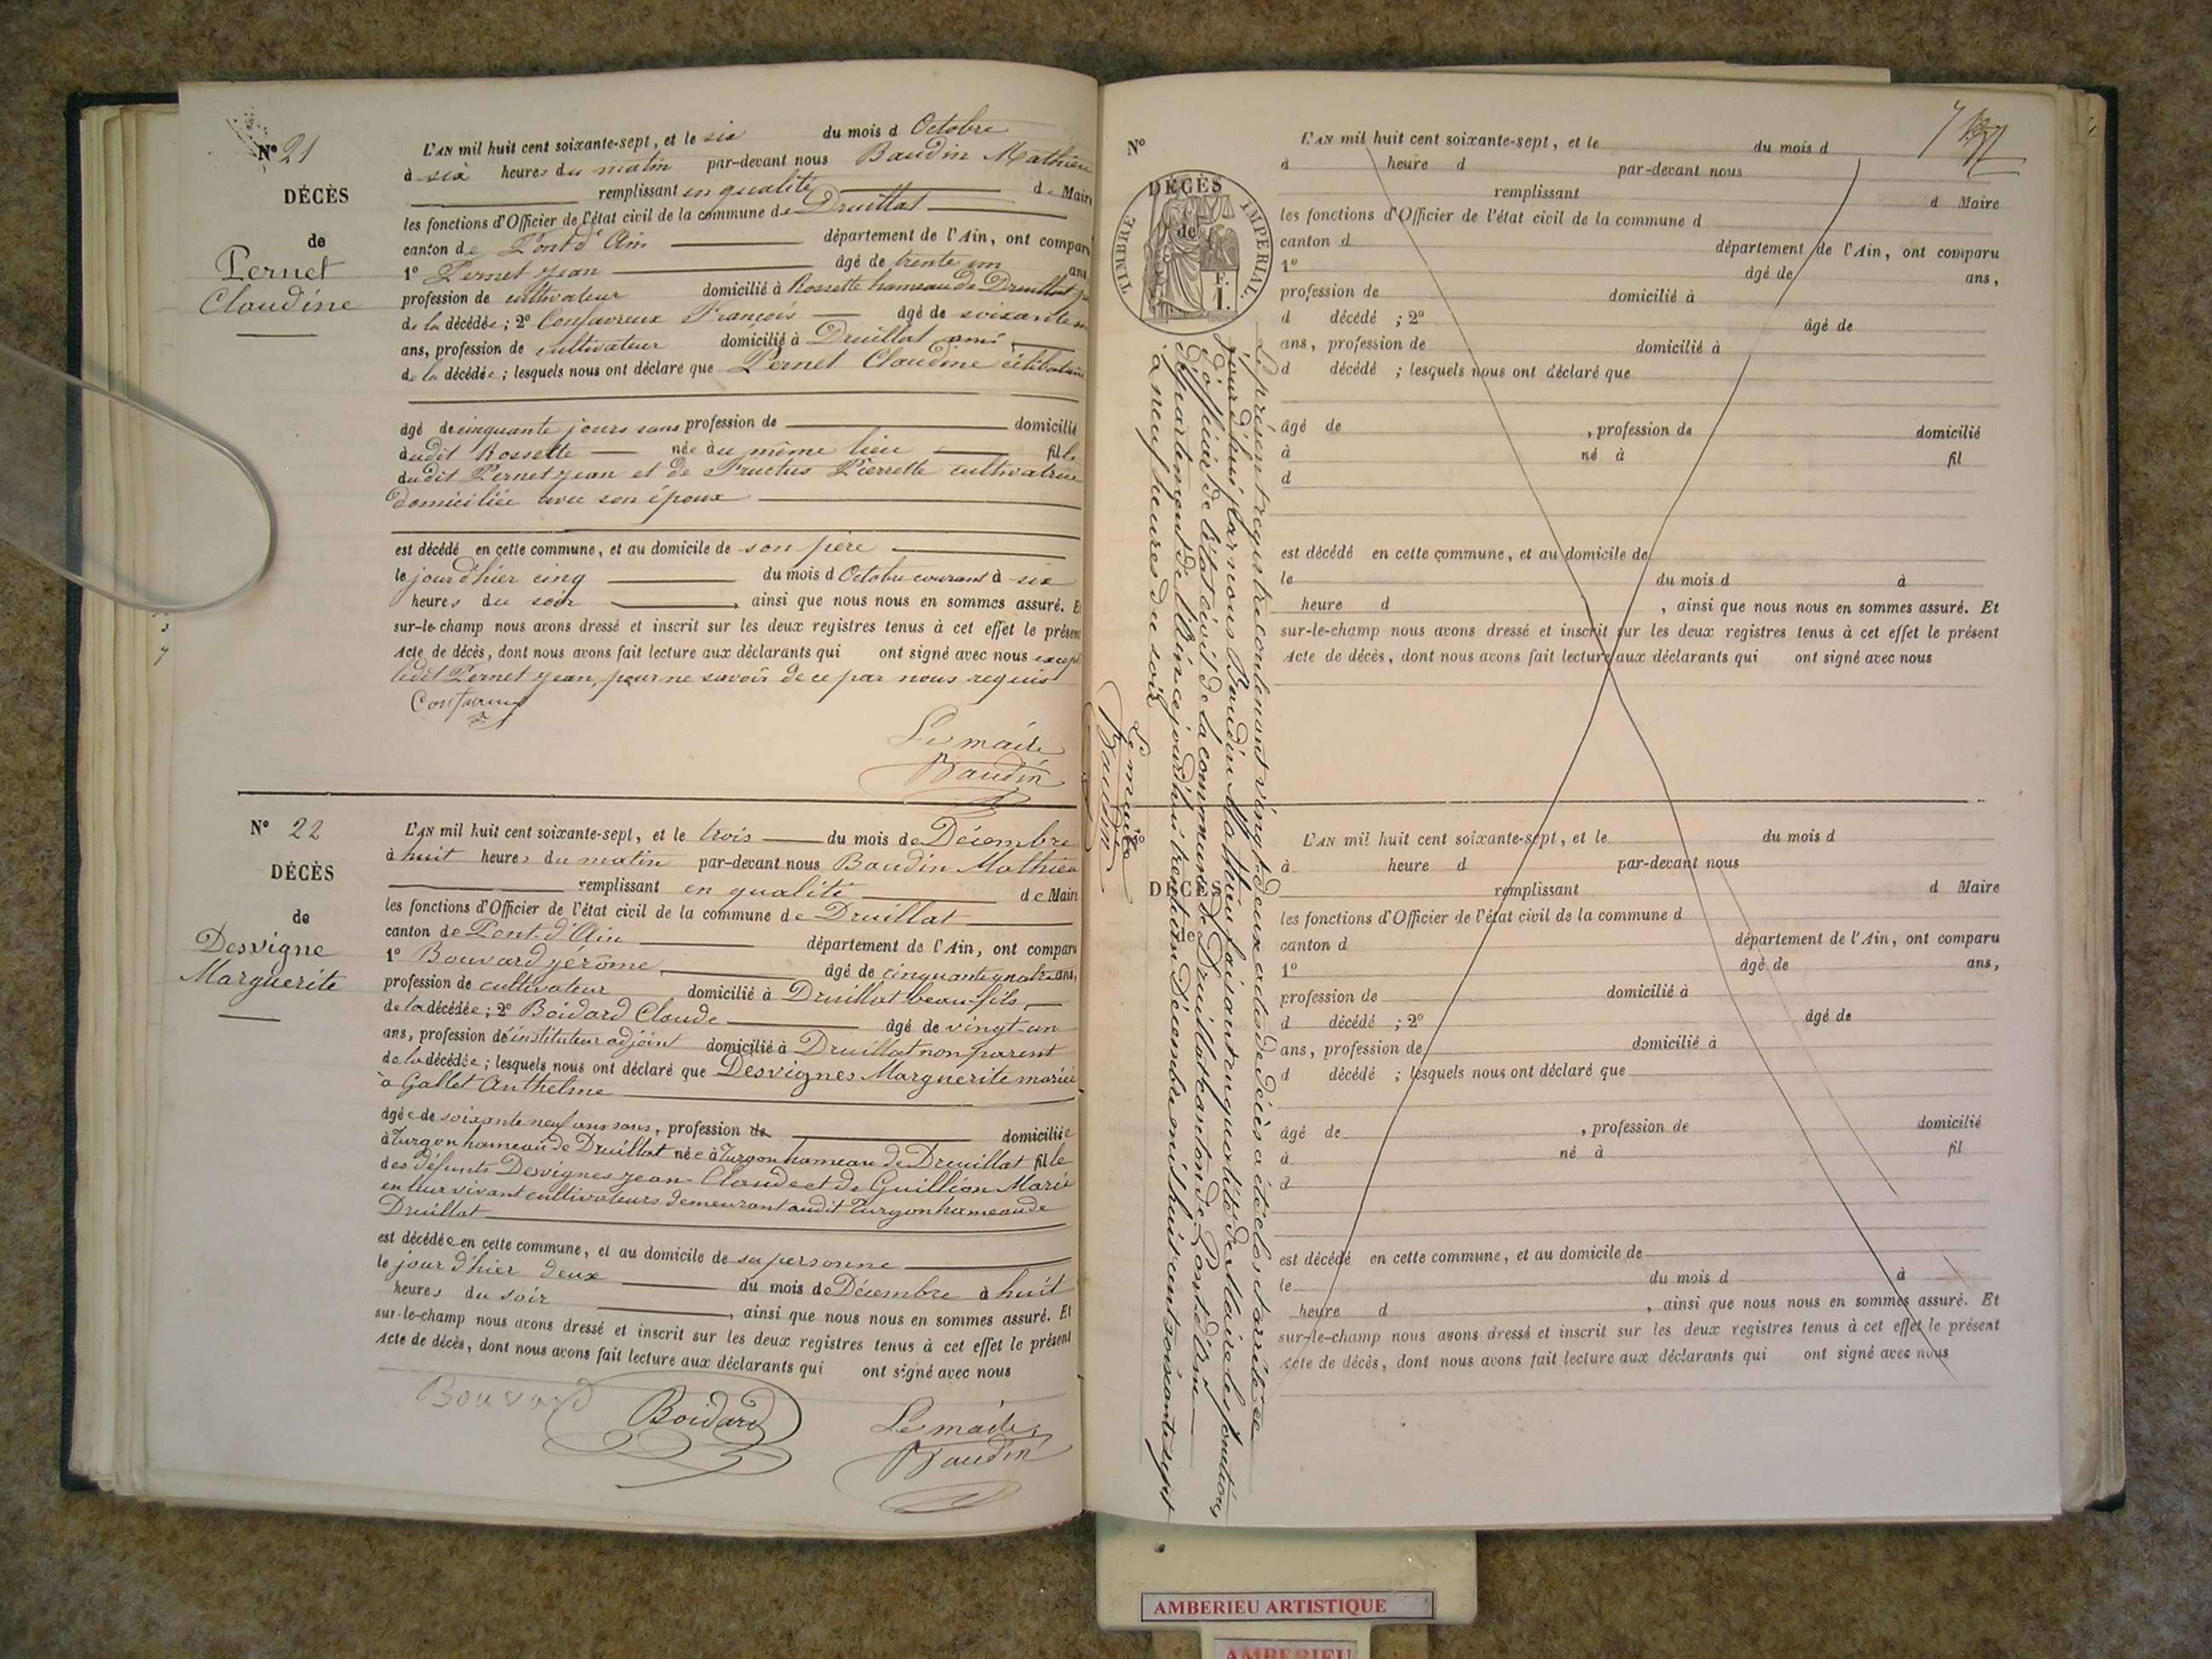 Nº 21
DÉCÈS
de
Pernet
Claudine
L'AN mil huit cent soixante-sept, et le six du mois d Octobre
à six heures du matin par-devant nous Baudin Mathieu
remplissant en qualité de Maire
les fonctions d'Officier de l'état civil de la commune de Druillat
canton de Pont d'Ain département de l'Ain, ont comparu
1º Pernet Jean âgé de trente un ans
profession de cultivateur domicilié à Rossette hameau de Druillat
de la décédée; 2º Confavreux François âgé de soixante
ans, profession de cultivateur domicilié à Druillat ami
de la décédée; lesquels nous ont déclaré que Pernet Claudine célibataire
âgé de cinquante jours sans profession de domicilié
audit Rossette née au même lieu fille
dudit Pernet Jean et de Fructus Pierrette cultivatrice
domiciliée avec son époux
est décédé en cette commune, et au domicile de son père
le jour d'hier cinq du mois d Octobre courant à six
heures du soir, ainsi que nous nous en sommes assuré. Et
sur-le-champ nous avons dressé et inscrit sur les deux registres tenus à cet effet le présent
Acte de décès, dont nous avons fait lecture aux déclarants qui ont signé avec nous excepté
ledit Pernet Jean, pour ne savoir de ce par nous requis
Confavreux
Le maire
Baudin
Nº 22
DÉCÈS
de
Desvigne
Marguerite
L'AN mil huit cent soixante-sept, et le trois du mois de Décembre
à huit heures du matin par-devant nous Baudin Mathieu
remplissant en qualité de Maire
les fonctions d'Officier de l'état civil de la commune de Druillat
canton de Pont-d'Ain département de l'Ain, ont comparu
1º Bouvard Jérôme, âgé de cinquante quatre ans,
profession de cultivateur domicilié à Druillat beau-fils
de la décédée; 2º Boidard Claude âgé de vingt-un
ans, profession d'instituteur adjoint domicilié à Druillat non parent
de la décédée; lesquels nous ont déclaré que Desvignes Marguerite mariée
à Gallet Anthelme
âgée de soixante neuf ans sans, profession de domiciliée
à Turgon hameau de Druillat née à Turgon hameau de Druillat fille
des défunts Desvignes Jean-Claude et de Guillion Marie
en leur vivant cultivateurs demeurant audit Turgon hameau de
Druillat
est décédée en cette commune, et au domicile de sa personne
le jour d'hier deux du mois de Décembre à huit
heures du soir, ainsi que nous nous en sommes assuré. Et
sur-le-champ nous avons dressé et inscrit sur les deux registres tenus à cet effet le présent
Acte de décès, dont nous avons fait lecture aux déclarants qui ont signé avec nous
Bouvard Boidard
Le maire
Baudin
Nº
DÉCÈS
de
TIMBRE IMPÉRIAL.
F.
1.
L'AN mil huit cent soixante-sept, et le du mois d
à heure d par-devant nous
remplissant d Maire
les fonctions d'Officier de l'état civil de la commune d
canton d département de l'Ain, ont comparu
1º âgé de ans,
profession de domicilié à
d décédé ; 2º âgé de
ans, profession de domicilié à
d décédé ; lesquels nous ont déclaré que
âgé de , profession de domicilié
à né à fil
d
est décédé en cette commune, et au domicile de
le du mois d à
heure d , ainsi que nous nous en sommes assuré. Et
sur-le-champ nous avons dressé et inscrit sur les deux registres tenus à cet effet le présent
Acte de décès, dont nous avons fait lecture aux déclarants qui ont signé avec nous
Le présent registre contenant vingt-deux actes de décès a été clos et arrêté ce
jourd'hui par nous Baudin Mathieu faisant en qualité de Maire les fonctions
d'officier de l'état civil de la commune de Druillat canton de Pont-d'Ain
département de l'Ain ce jourd'hui trente un Décembre mil huit cent soixante sept
à neuf heures du soir
Le maire
Baudin
Nº
DÉCÈS
de
L'AN mil huit cent soixante-sept, et le du mois d
à heure d par-devant nous
remplissant d Maire
les fonctions d'Officier de l'état civil de la commune d
canton d département de l'Ain, ont comparu
1º âgé de ans,
profession de domicilié à
d décédé ; 2º âgé de
ans, profession de domicilié à
d décédé ; lesquels nous ont déclaré que
âgé de , profession de domicilié
à né à fil
d
est décédé en cette commune, et au domicile de
le du mois d à
heure d , ainsi que nous nous en sommes assuré. Et
sur-le-champ nous avons dressé et inscrit sur les deux registres tenus à cet effet le présent
Acte de décès, dont nous avons fait lecture aux déclarants qui ont signé avec nous
AMBERIEU ARTISTIQUE
AMBERIEU